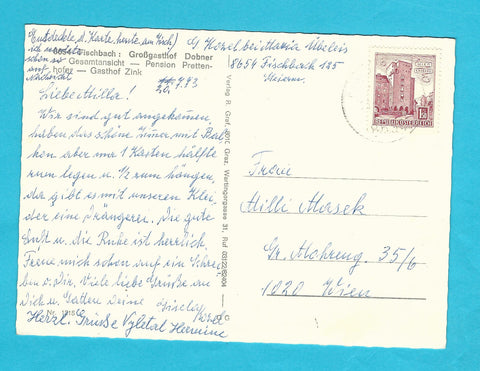 (Entdeckte d. Karte heute am Tisch)
8654 Fischbach: Großgasthof Dobner
Gesamtansicht — Pension Pretten-
hofer — Gasthof Zink
20. 7.93
Liebe Milla!
Wir sind gut angekommen,
haben das schöne Zimmer mit Bal
kon aber nur 1 Kasten hälfte
zum legen u. ½ zum hängen,
da gibt es mit unseren Klei
der eine Drängerei. Die gute
Luft u. die Ruhe ist herrlich.
Freue mich schon auf ein Schrei
ben v. Dir. Viele liebe Grüße an
Dich u. Gatten Deine Giselas
Herzl. Grüße Vyletal Hermine
Verlag R. Graf, 8010 Graz
G. Hozel bei Maria Übeleis
8654 Fischbach 185
Steierm.
REPUBLIK ÖSTERREICH
Frau
Milli Masek
Gr. Mohreng. 35/6
1020 Wien